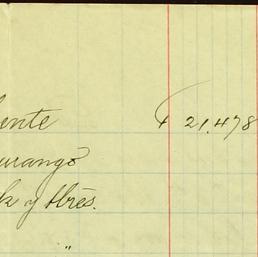 ente $ 21,478
urango
k y Hrēs.
"